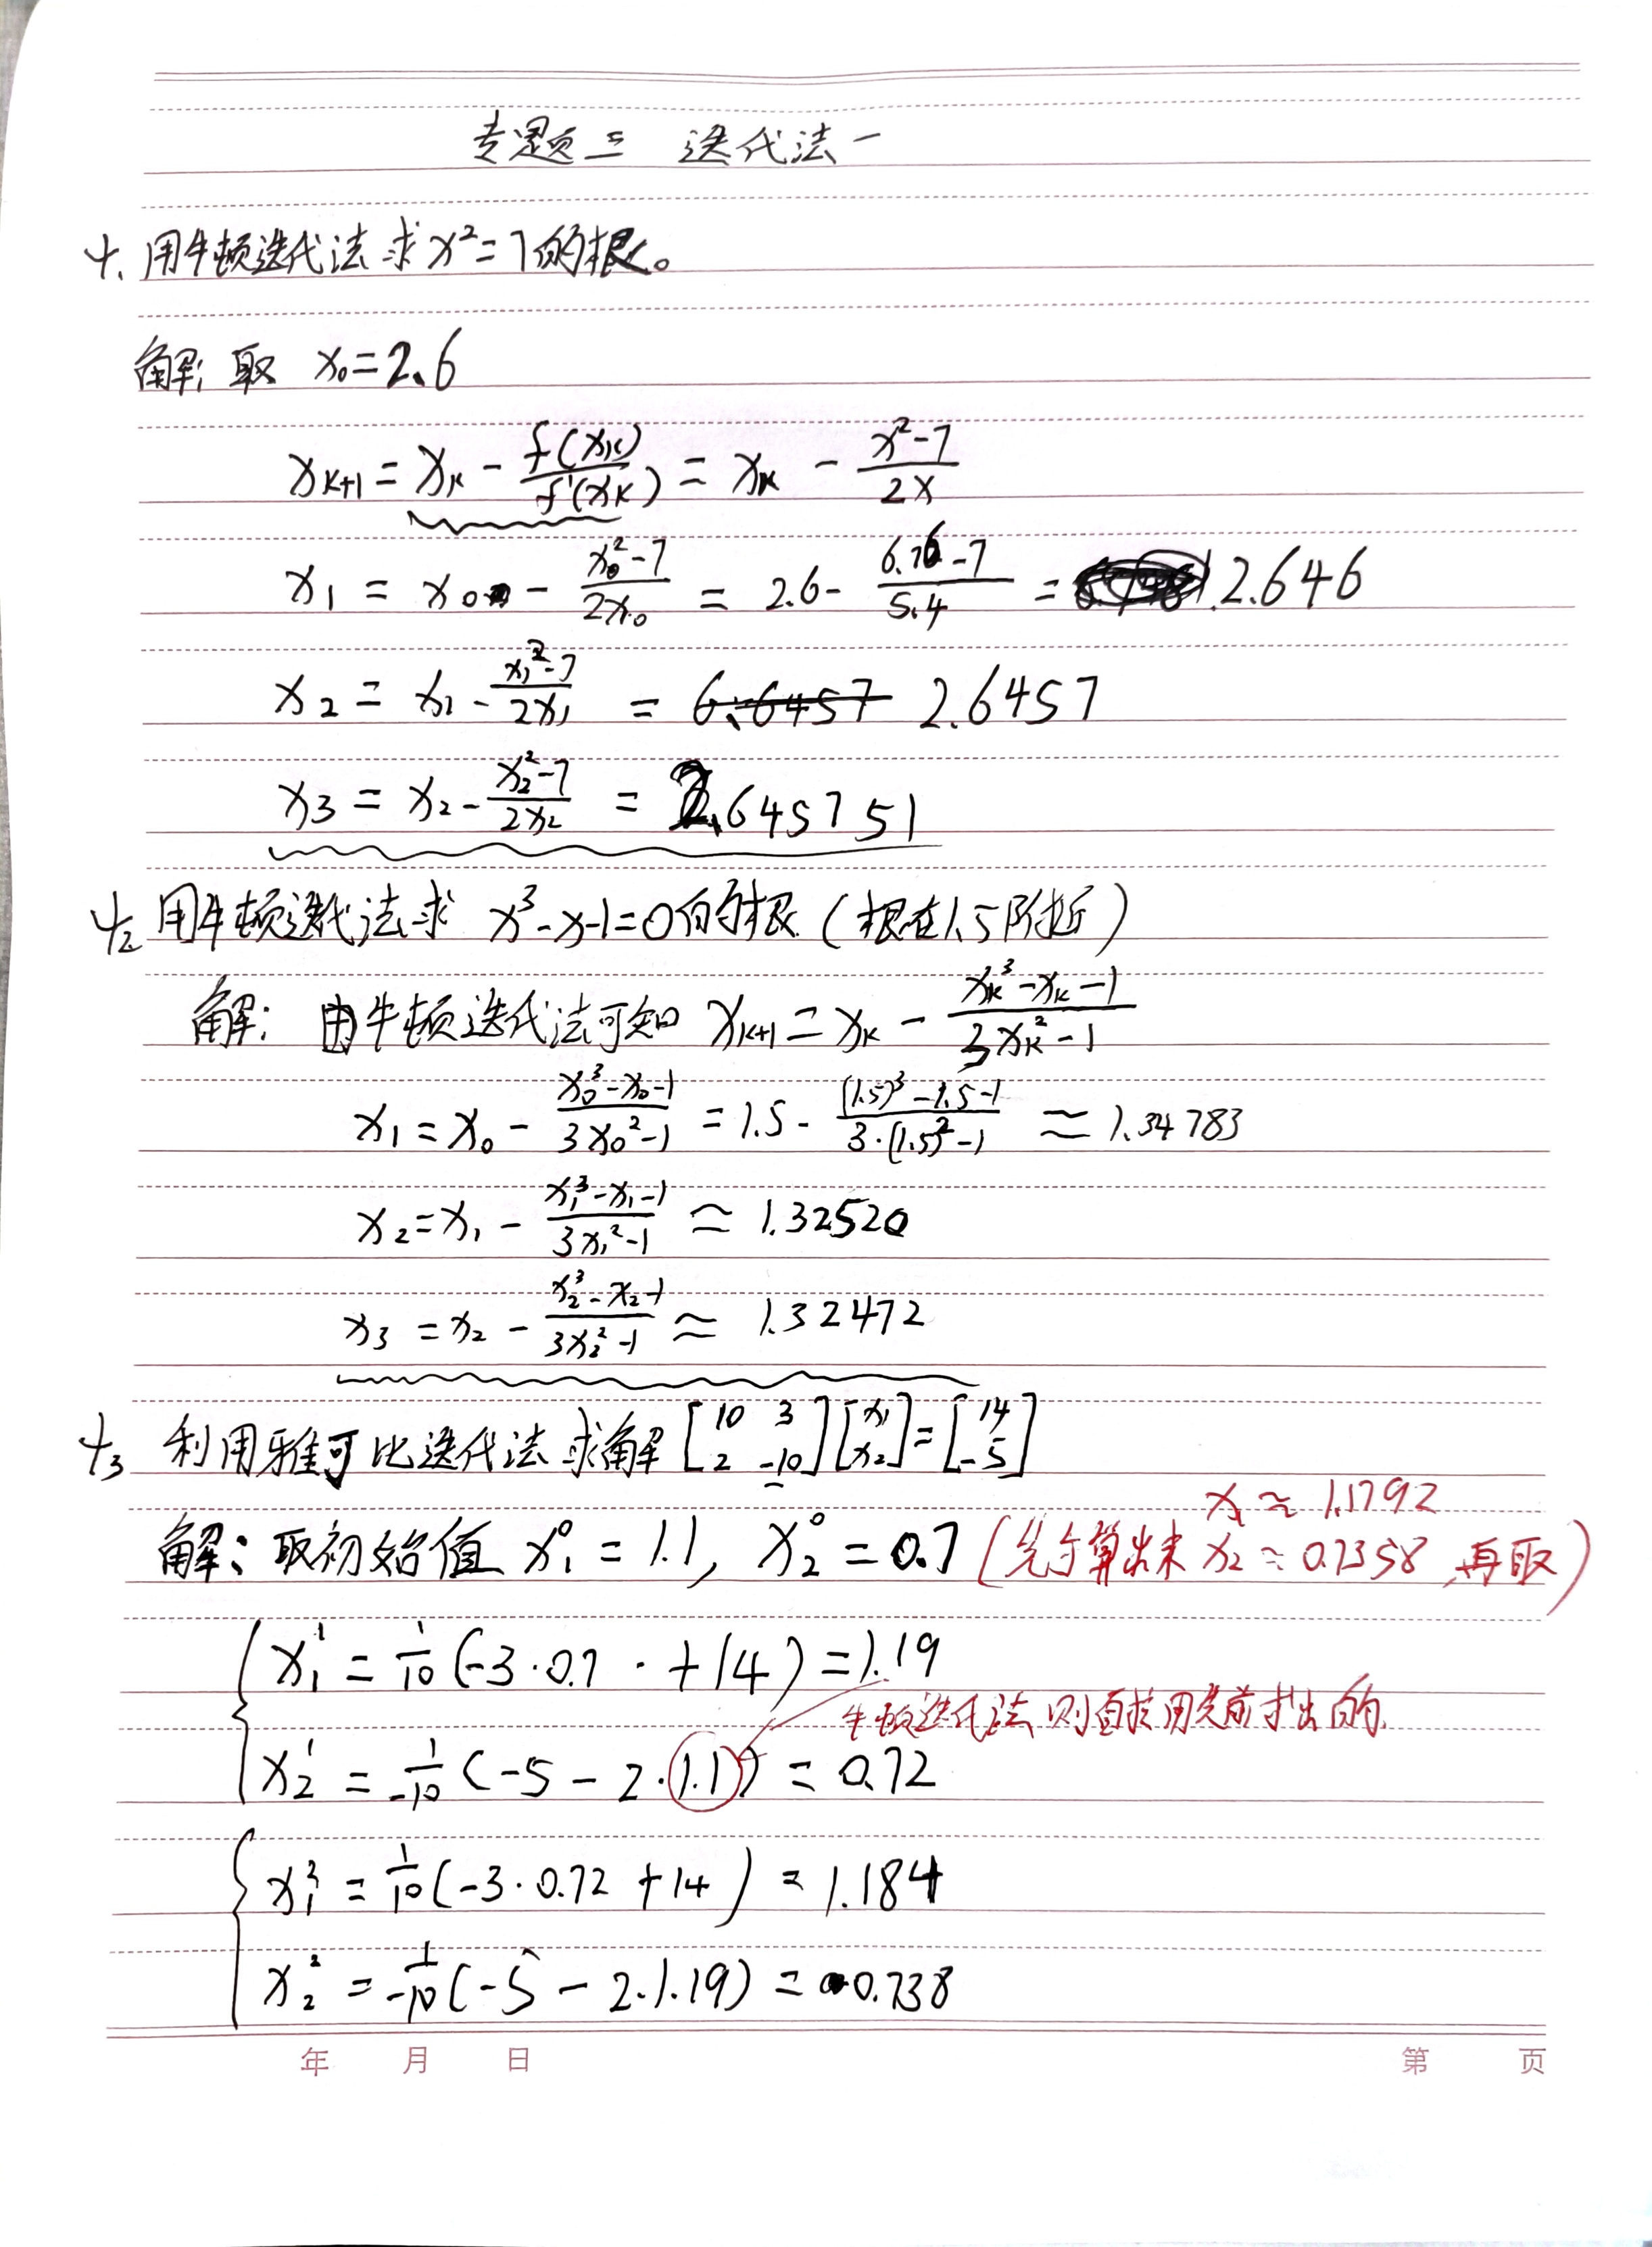 专题三 迭代法一
1. 用牛顿迭代法求 x²=7的根。
解: 取 x₀=2.6
xₖ₊₁ = xₖ - f(xₖ)/f'(xₖ) = xₖ - (x²-7)/(2x)
x₁ = x₀ - (x₀²-7)/(2x₀) = 2.6 - (6.76-7)/5.4 = 2.646
x₂ = x₁ - (x₁²-7)/(2x₁) = 6.6457 2.6457
x₃ = x₂ - (x₂²-7)/(2x₂) = 2.645751
2 用牛顿迭代法求 x³-x-1=0的根 (根在1.5附近)
解: 由牛顿迭代法可知 xₖ₊₁ = xₖ - (xₖ³-xₖ-1)/(3xₖ²-1)
x₁ = x₀ - (x₀³-x₀-1)/(3x₀²-1) = 1.5 - ((1.5)³-1.5-1)/(3·(1.5)²-1) ≈ 1.34783
x₂ = x₁ - (x₁³-x₁-1)/(3x₁²-1) ≈ 1.32520
x₃ = x₂ - (x₂³-x₂-1)/(3x₂²-1) ≈ 1.32472
3 利用雅可比迭代法求解 [10 3; 2 -10][x₁; x₂]=[14; -5]
x₁ ≈ 1.1792
解: 取初始值 x₁⁰ = 1.1, x₂⁰ = 0.7 (先计算出来 x₂ ≈ 0.7358 再取)
x₁¹ = 1/10 (-3·0.7 · +14) = 1.19
牛顿迭代法则直接用先前求出的.
x₂¹ = 1/-10 (-5 - 2·1.1) = 0.72
x₁² = 1/10 (-3·0.72 +14) = 1.184
x₂² = 1/-10 (-5 - 2·1.19) = 0.738
年 月 日 第 页